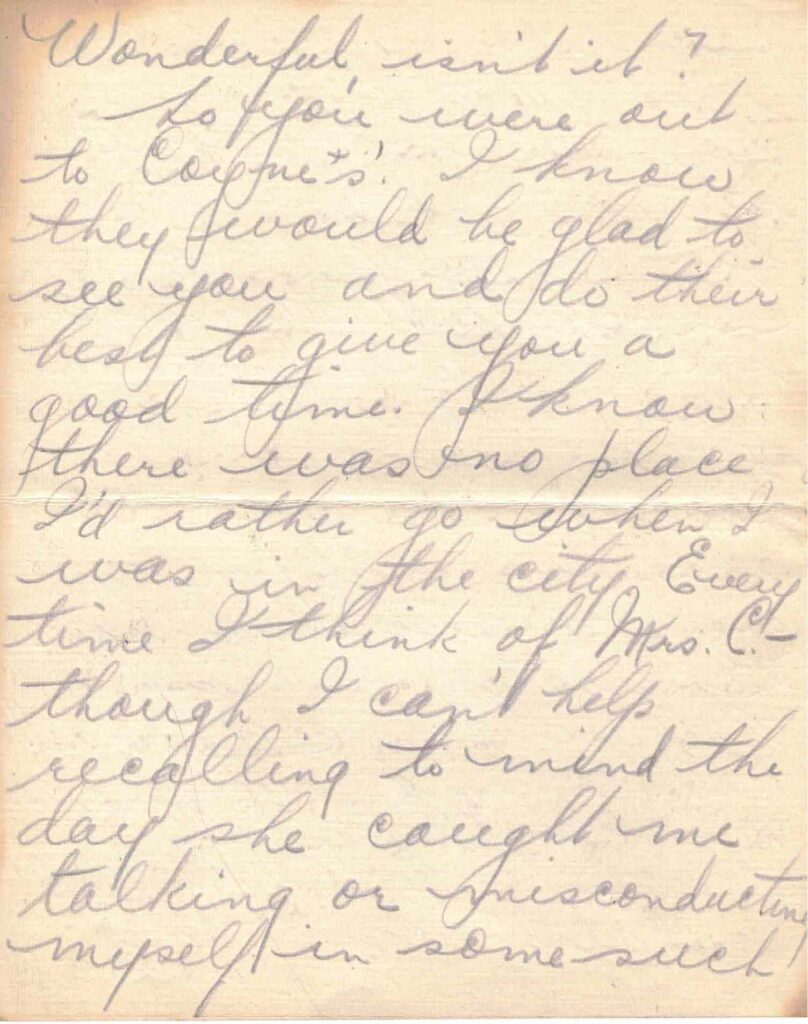 Wonderful, isn't it?
So you were out
to Coyne's. I know
they would be glad to
see you and do their
best to give you a
good time. I know
there was no place
I'd rather go when I
was in the city. Every
time I think of Mrs. C. -
though I can't help
recalling to mind the
day she caught me
talking or misconducting
myself in some such